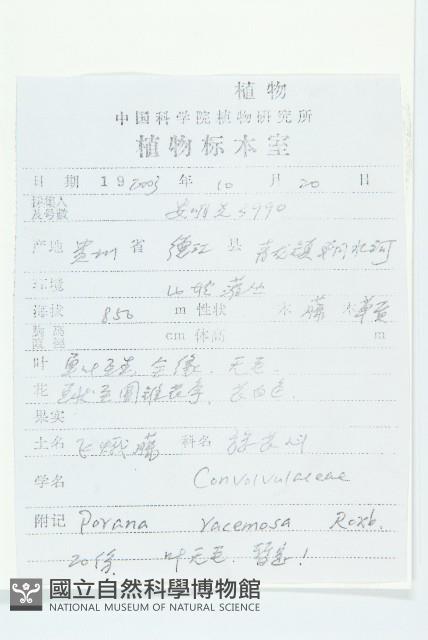 植物
中国科学院植物研究所
植物标本室
日期 19 2003 年 10 月 20 日
採集人
及号数 安明先 3990
产地 贵州 省 德江 县 青龙镇
环境 山坡 灌丛
海拔 850 m 性状 木 藤 本
胸高
直径 cm 体高 m
叶 全缘. 无毛.
花
果实
土名 飞蛾藤 科名 旋花科
学名 Convolvulaceae
附记 Porana racemosa Roxb.
20份. 叶无毛.
國立自然科學博物館
NATIONAL MUSEUM OF NATURAL SCIENCE